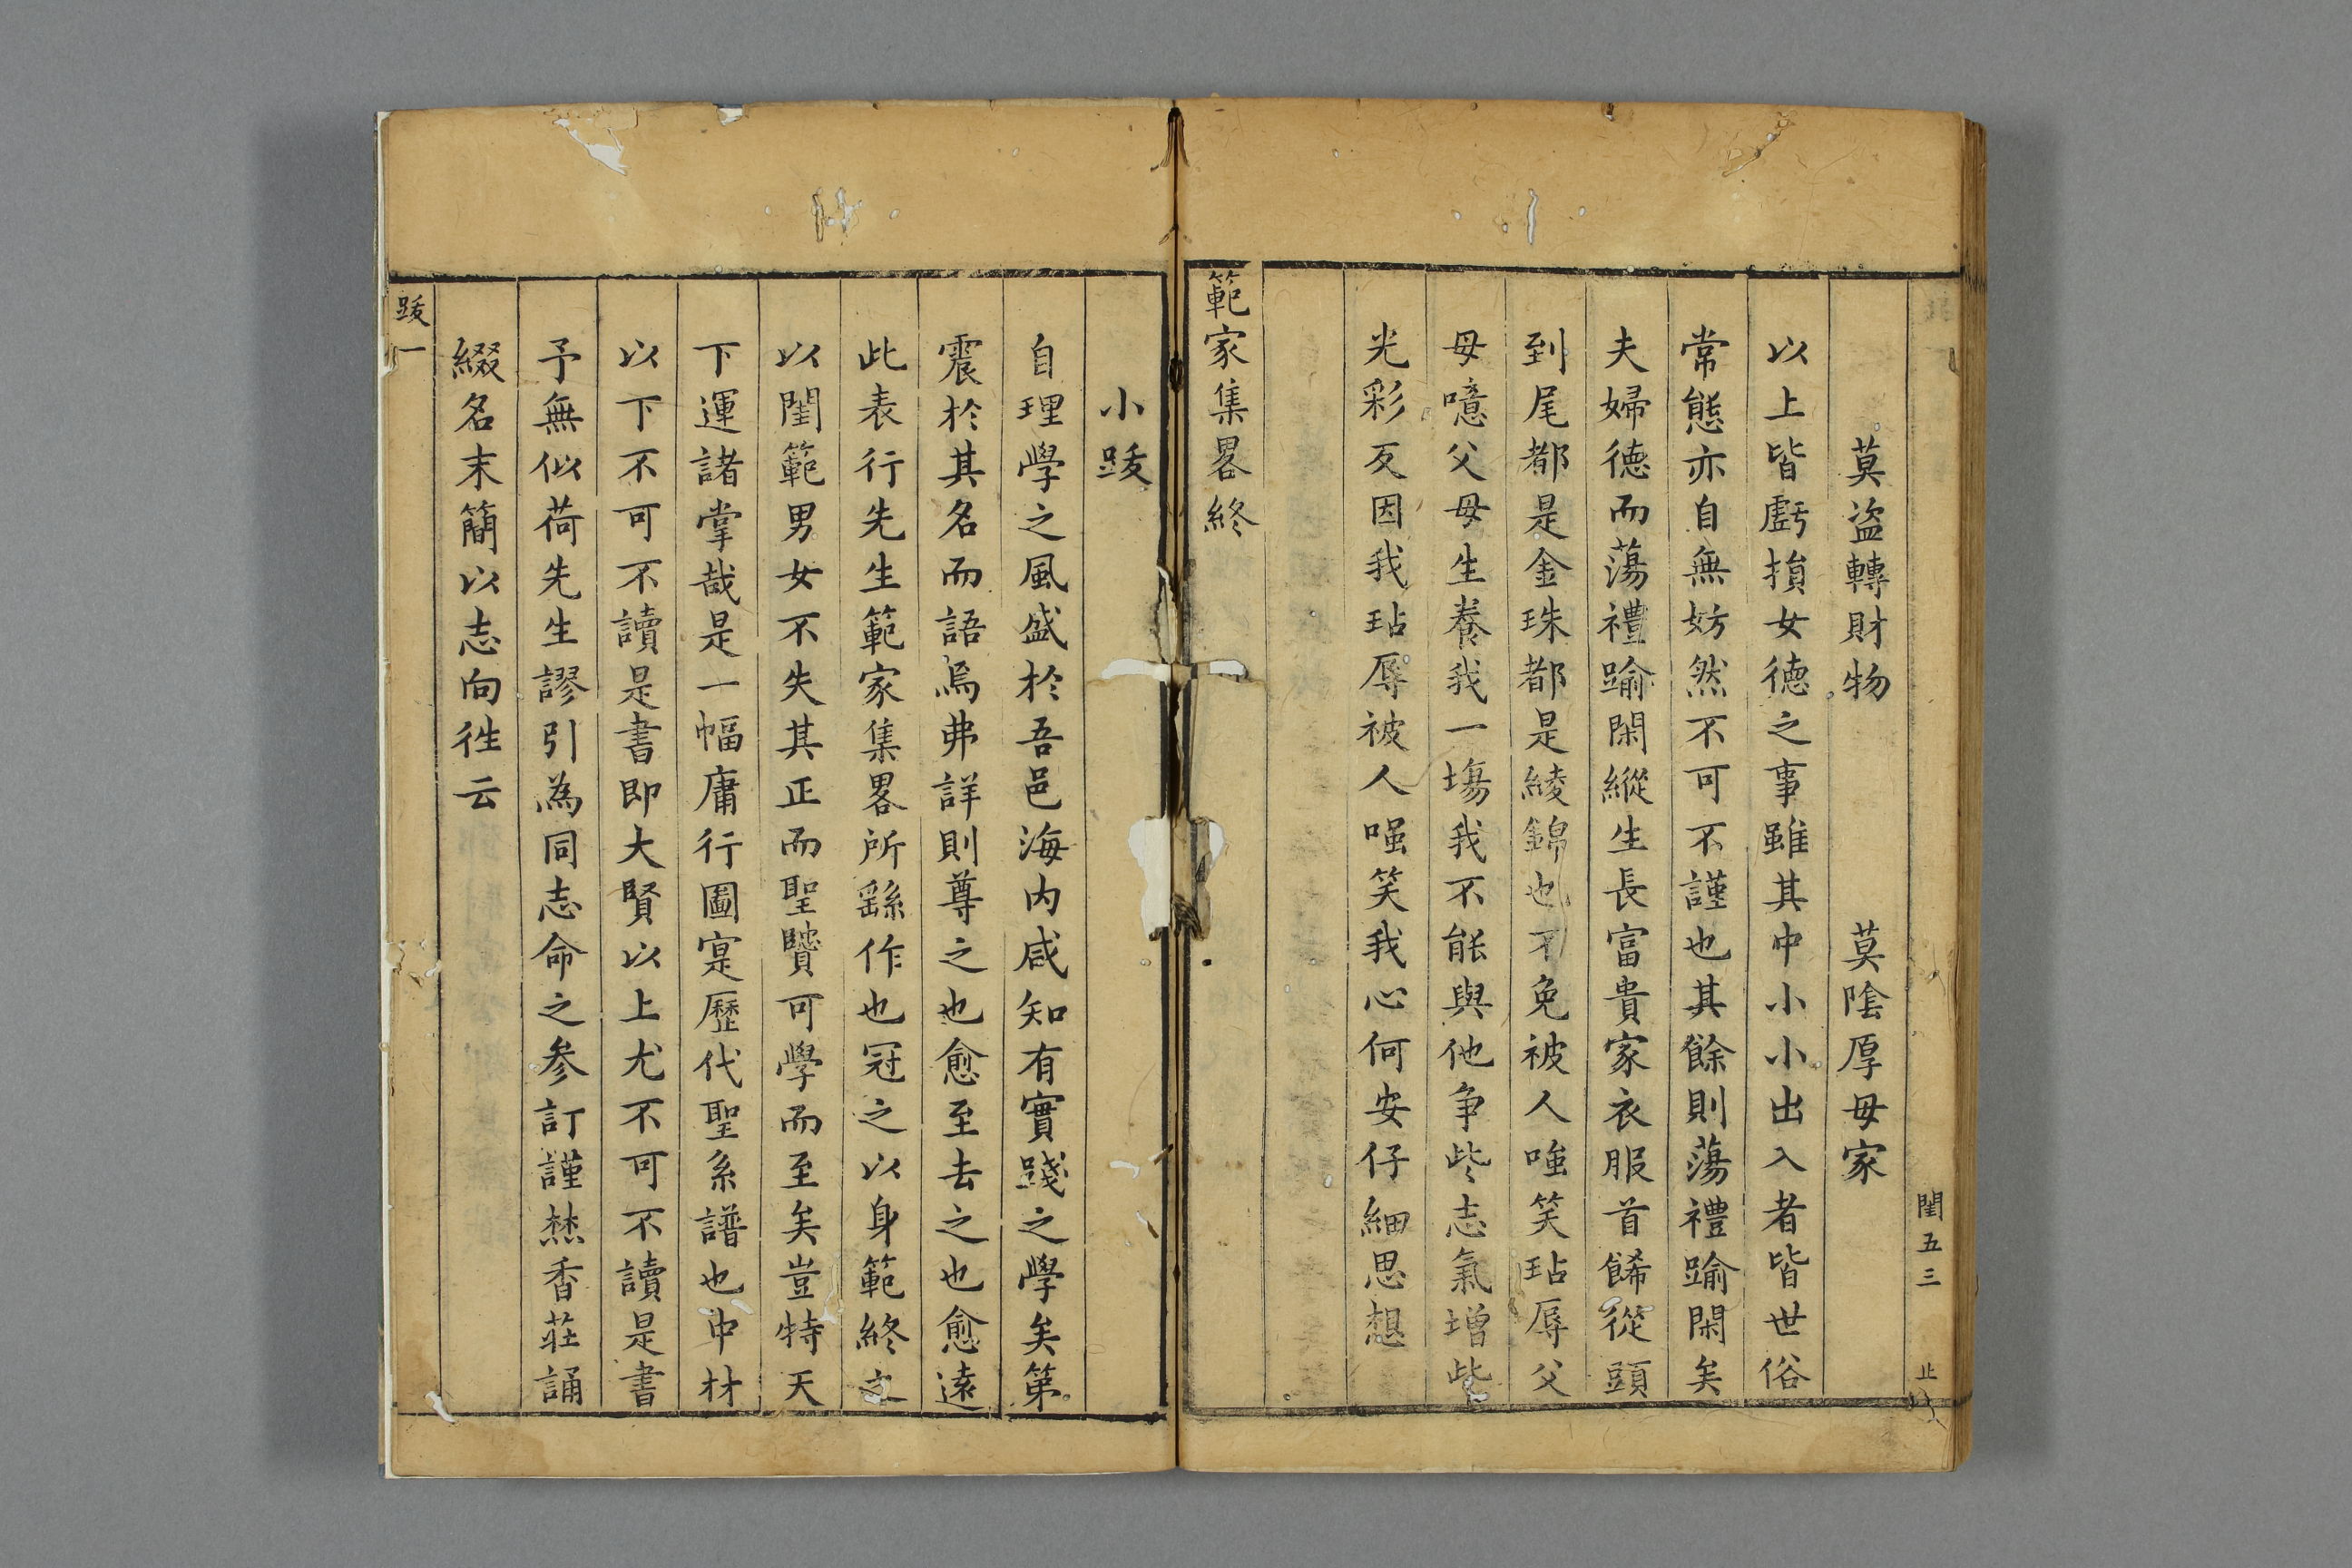 閨五三
止
莫盜轉財物　莫陰厚母家
以上皆虧損女德之事雖其中小小出入者皆世俗
常態亦自無妨然不可不謹也其餘則蕩禮踰閑矣
夫婦德而蕩禮踰閑縱生長富貴家衣服首餙從頭
到尾都是金珠都是綾錦也不免被人嗤笑玷辱父
母噫父母生養我一塲我不能與他争些志氣增些
光彩反因我玷辱被人嗤笑我心何安仔細思想
範家集畧終
小䟦
自理學之風盛於吾邑海内咸知有實踐之學矣第
震於其名而語焉弗詳則尊之也愈至去之也愈遠
此表行先生範家集畧所繇作也冠之以身範終之
以閨範男女不失其正而聖贒可學而至矣豈特天
下運諸掌哉是一幅庸行圖寔歷代聖系譜也中材
以下不可不讀是書即大賢以上尤不可不讀是書
予無似荷先生謬引為同志命之参訂謹焚香莊誦
綴名末簡以志向徃云
䟦一